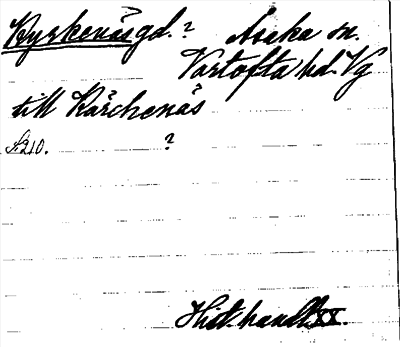 Kyrkenäs gd.? Åsaka sn.
Vartofta hd. Vg
till Kärchenäs
S. 210. ?
Hist. handl. XX.